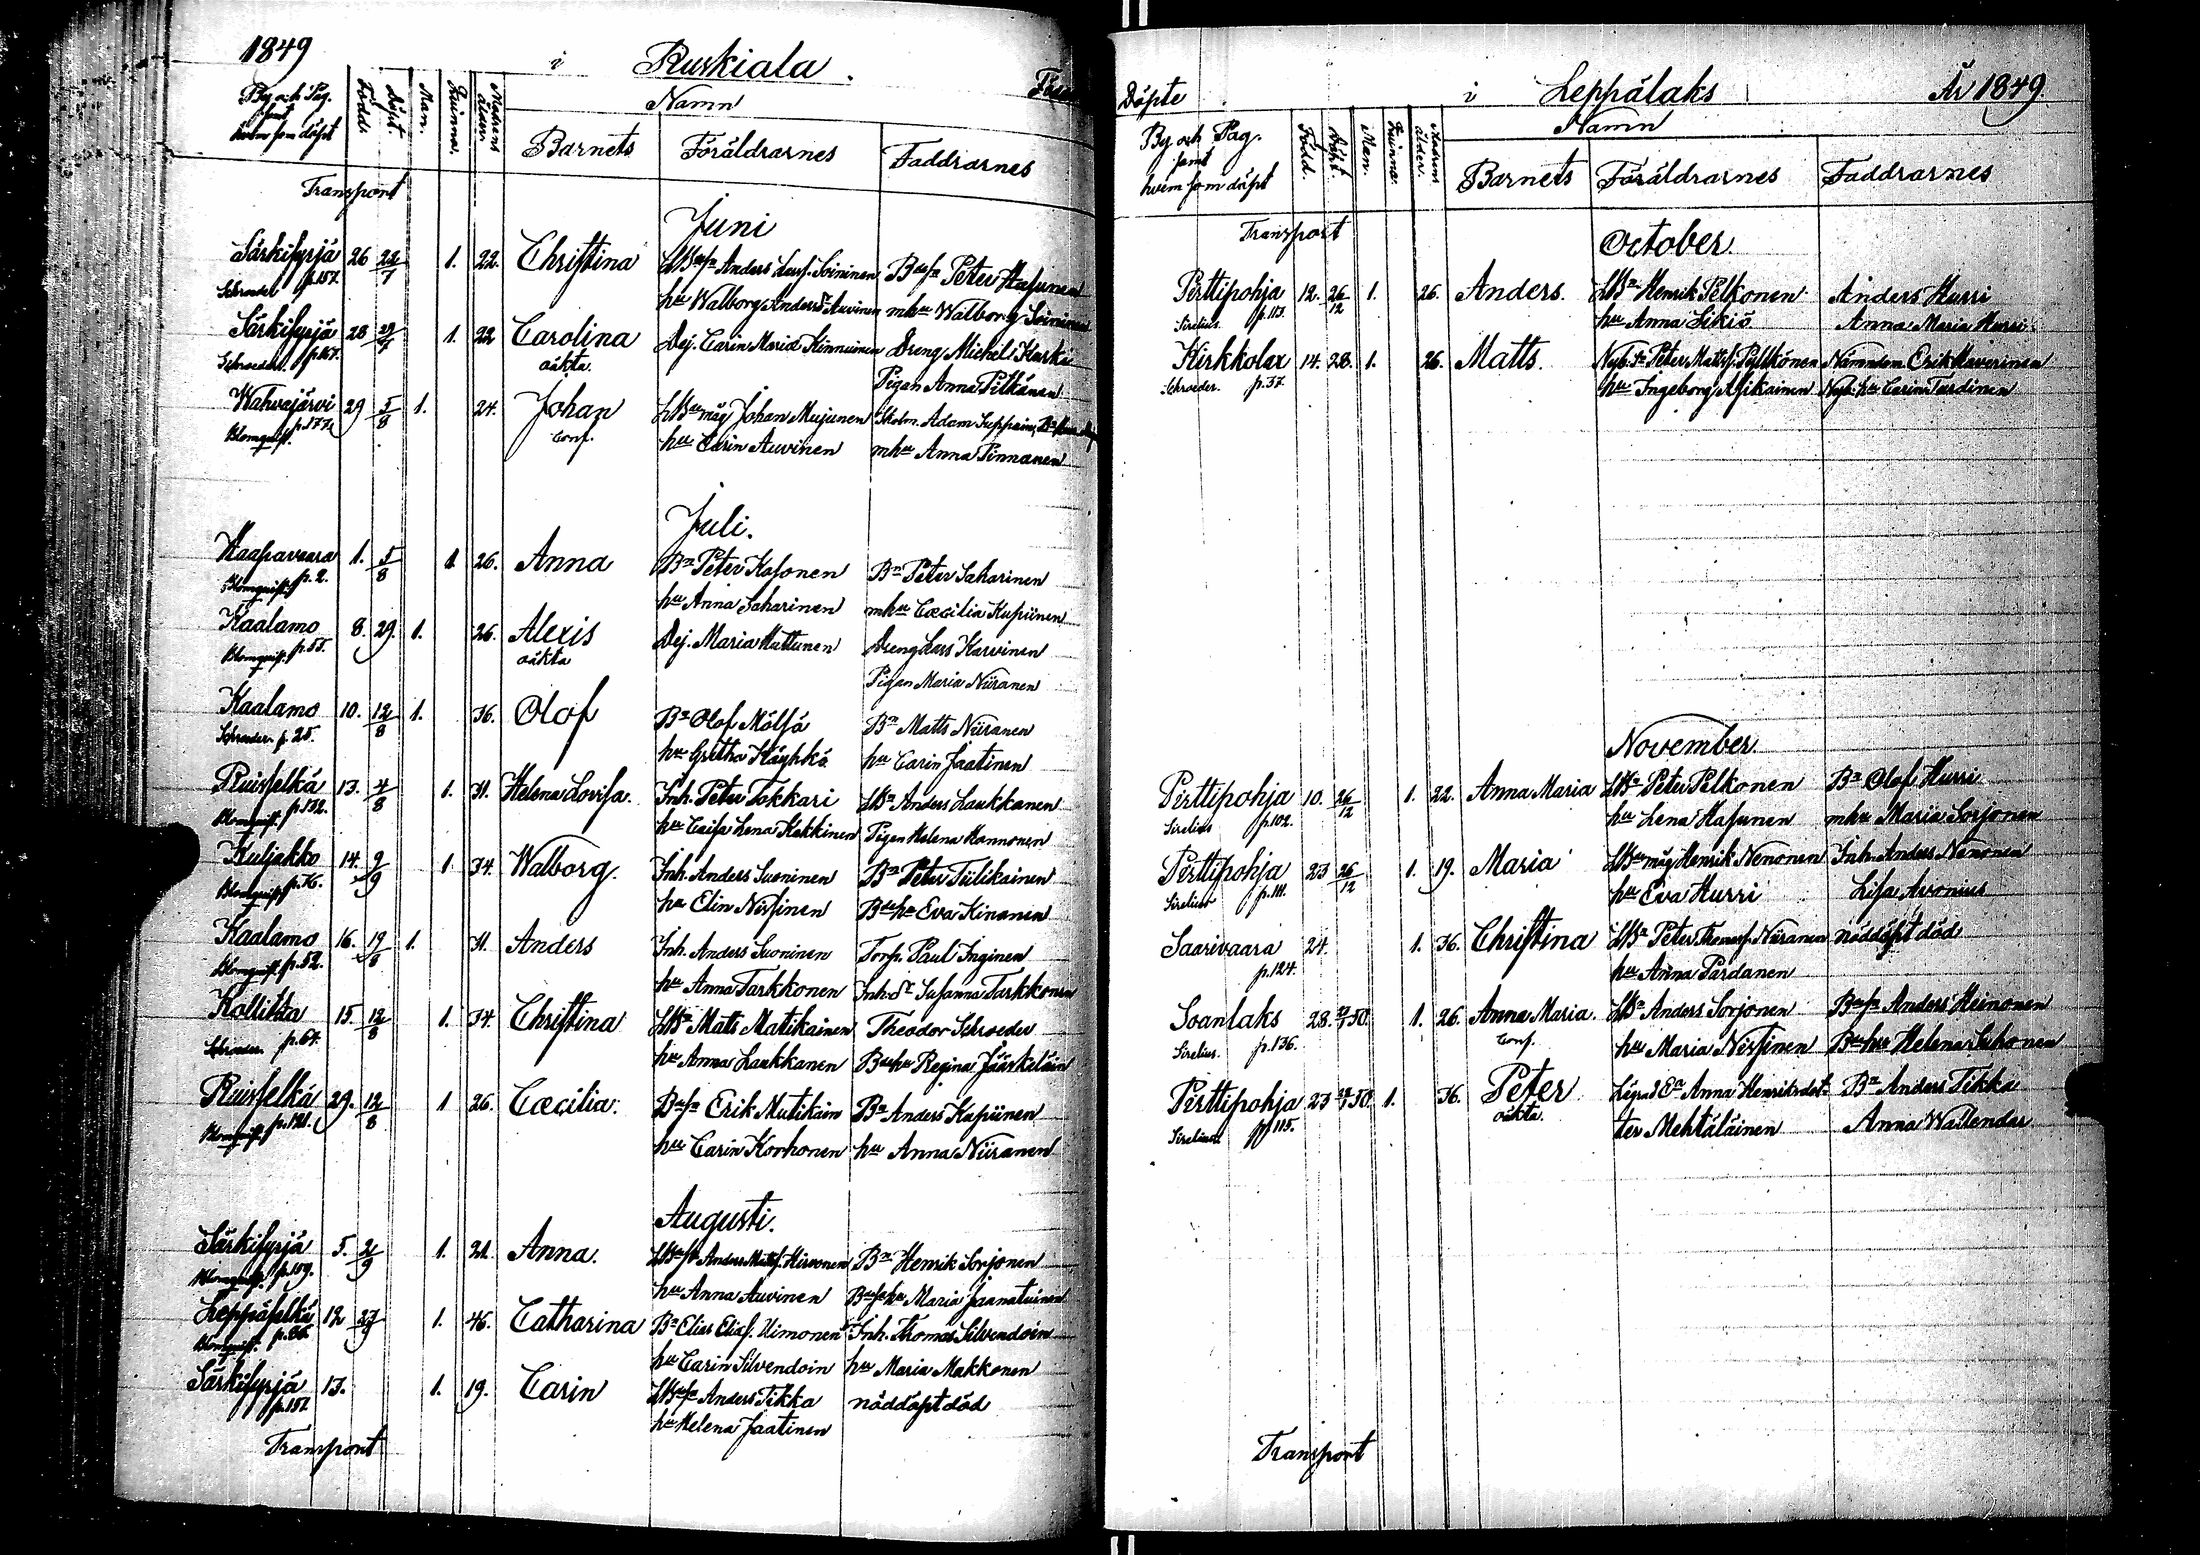 1849
i Ruskiala.
By och Pag. samt hvem som döpt
Född.
Döpt.
Man.
Quinna.
Modrens ålder.
Namn
Barnets Föräldrarnes Faddrarnes
Transport
Juni
Särkisyrjä 26 22/7 1. 22. Christina LBdesn Anders Soininen Bdesn Peter Hasunen
Schroeder p.157. hu Walborg Andersdr Auvinen mhu Walborg Soininen
Särkisyrjä 28 29/7 1. 22 Carolina Dej. Carin Maria Kinnuinen Dreng Michel Karki
Schroeder p.167. oäkta. Pigan Anna Pitkänen
Wahvajärvi 29 5/8 1. 24. Johan LBde måg Johan Mujunen Skolm. Adam Seppäin
Blomqvist. p.177. Conf. hu Carin Auvinen mhu Anna Pinnanen
Juli.
Haapavaara 1. 5/8 1. 26. Anna Bn Peter Kasonen Bn Peter Saharinen
Blomqvist p. 2. hu Anna Saharinen mhu Cæcilia Kupiinen
Kaalamo 8. 29. 1. 26. Alexis Dej. Maria Hattunen Dreng Lars Karvinen
Blomqvist. p.55. oäkta Pigan Maria Niiranen
Kaalamo 10. 12/8 1. 36. Olof Bn Olof Mölsä Bn Matts Niiranen
Schroeder. p. 25. hu Gretha Häyhkä hu Carin Jaatinen
Ruisselkä 13. 4/8 1. 31. Helena Lovisa. Inh. Peter Tokkari LBn Anders Laukkanen
Blomqvist. p.132. hu Caisa Lena Kekkinen Pigan Helena Hannonen
Kuljakko 14. 9/9 1 34. Walborg. Inh. Anders Sueninen Bn Peter Tiilikainen
Blomqvist p.76. hu Elin Nissinen Bdehu Eva Kinanen
Kaalamo 16. 19/8 1. 31. Anders Inh. Anders Suoninen Torp. Paul Inginen
Blomqvist. p.52. hu Anna Tarkkonen Inh:dr Susanna Tarkkonen
Kollitta 15. 12/8 1. 34. Christina LBn Matts Matikainen Theodor Schroeder
Schroeder. p.64. hu Anna Laukkanen Bdehu Regina Jääskeläin
Ruisselkä 29. 12/8 1 26. Cæcilia. Bdesn Erik Mutikain Bn Anders Kapiinen
Blomqvist p.121. hu Carin Korhonen hu Anna Niiranen
Augusti.
Särkisyrjä 5. 2/9 1. 21. Anna. LBdesn Anders Mattss. Hirvonen Bn Henrik Sorjonen
Blomqvist. p.159. hu Anna Auvinen Bdesnhu Maria Jaanatuinen
Leppäselkä 12 27/9 1. 46. Catharina Bn Elias Eliass. Uimonen Inh. Thomas Silvendoin
Blomqvist. p.86. hu Carin Silvendoin hu Maria Makkonen
Särkisyrjä 13. 1. 19. Carin LBdesn Anders Tikka nöddöpt död
p.157. hu Helena Jaatinen
Transport
Döpte i Leppälaks År 1849.
By och Pag. samt hvem som döpt
Född.
Döpt.
Man.
Quinna.
Modrens ålder.
Namn
Barnets Föräldrarnes Faddrarnes
Transport
October.
Perttipohja 12. 26/12 1. 26. Anders. LBn Henrik Pelkonen Anders Hurri
Sirelius p.113. hu Anna Sikiö Anna Maria Hurri
Kirkkolax 14. 28. 1. 26. Matts. Nyb. Peter Mattss. Pylkkönen Nämndem. Erik Kaverinen
Schroeder. p.37. hu Ingeborg Asikainen Nyb.hu Carin Tardinen
November.
Perttipohja 10. 26/12 1. 22. Anna Maria LBn Peter Pelkonen Bn Olof Hurri
Sirelius p.102. hu Lena Hasunen mhu Maria Sorjonen
Perttipohja 23 26/12 1. 19. Maria LBde måg Henrik Nenonen Inh. Anders Nenonen
Sirelius p.111. hu Eva Hurri Lisa Avonius
Saarivaara 24. 1. 36. Christina LBn Peter Thomass. Niiranen nöddöpt död
p.124. hu Anna Pardanen
Soanlaks 28. 50. 1. 26. Anna Maria. LBn Anders Sorjonen Bdesn Anders Heinonen
Sirelius. p.136. Conf. hu Maria Nissinen Bdehu Helena Suhonen
Perttipohja 23 50 1. 36. Peter Anna Henriksdot- Bn Anders Tikka
Sirelius p.115. oäkta. ter Mehtäläinen Anna Wallendar
Transport